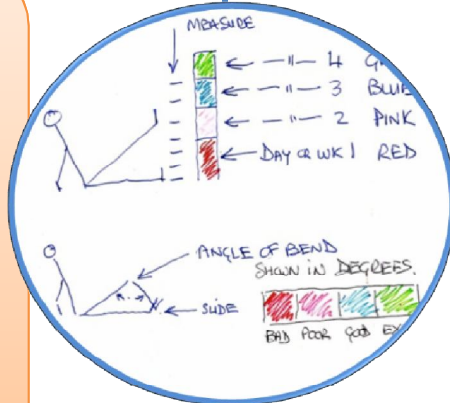 MEASURE
— " — 4
— " — 3 BLUE
— " — 2 PINK
DAY OR WK 1 RED
ANGLE OF BEND
SHOWN IN DEGREES.
SLIDE
BAD POOR GOOD